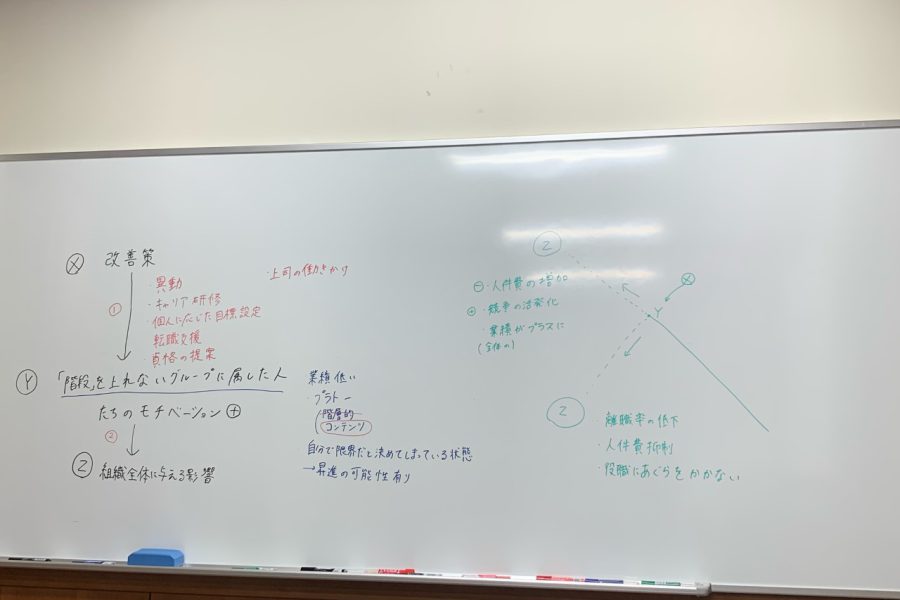 Ⓧ 改善策
①
・異動
・キャリア研修
・個人に応じた目標設定
転職支援
・資格の提案
・上司の働きかけ
Ⓨ 「階段」を上れないグループに属した人
たちのモチベーション⊕
②
Ⓩ 組織全体に与える影響
業績低い
・プラトー
階層的
コンテンツ
・自分で限界だと決めてしまっている状態
→昇進の可能性有り
Ⓩ
⊖・人件費の増加
⊕・競争の活発化
・業績がプラスに
(全体の)
Ⓧ
Y
Ⓩ
・離職率の低下
・人件費抑制
・役職にあぐらをかかない